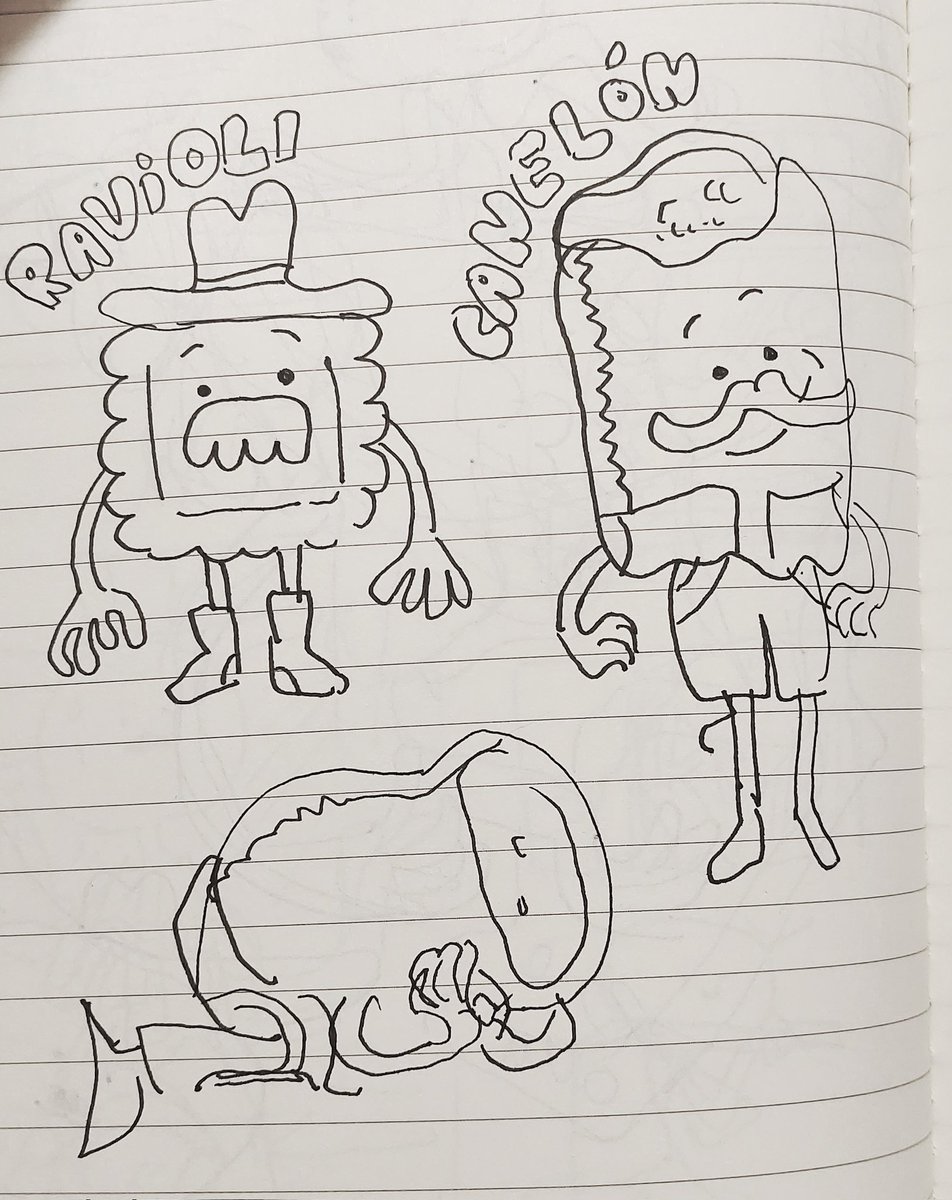 RAViOLI
CANELÓN